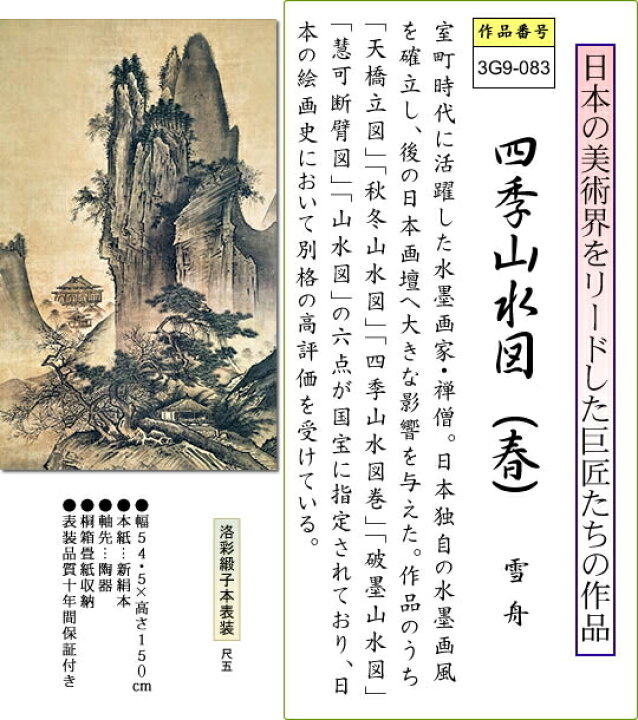 日本の美術界をリードした巨匠たちの作品
作品番号
3G9-083
四季山水図(春)
雪舟
室町時代に活躍した水墨画家・禅僧。日本独自の水墨画風
を確立し、後の日本画壇へ大きな影響を与えた。作品のうち
「天橋立図」「秋冬山水図」「四季山水図巻」「破墨山水図」
「慧可断臂図」「山水図」の六点が国宝に指定されており、日
本の絵画史において別格の高評価を受けている。
洛彩緞子本表装 尺五
●幅54・5×高さ150cm
●本紙…新絹本
●軸先…陶器
●桐箱畳紙収納
●表装品質十年間保証付き